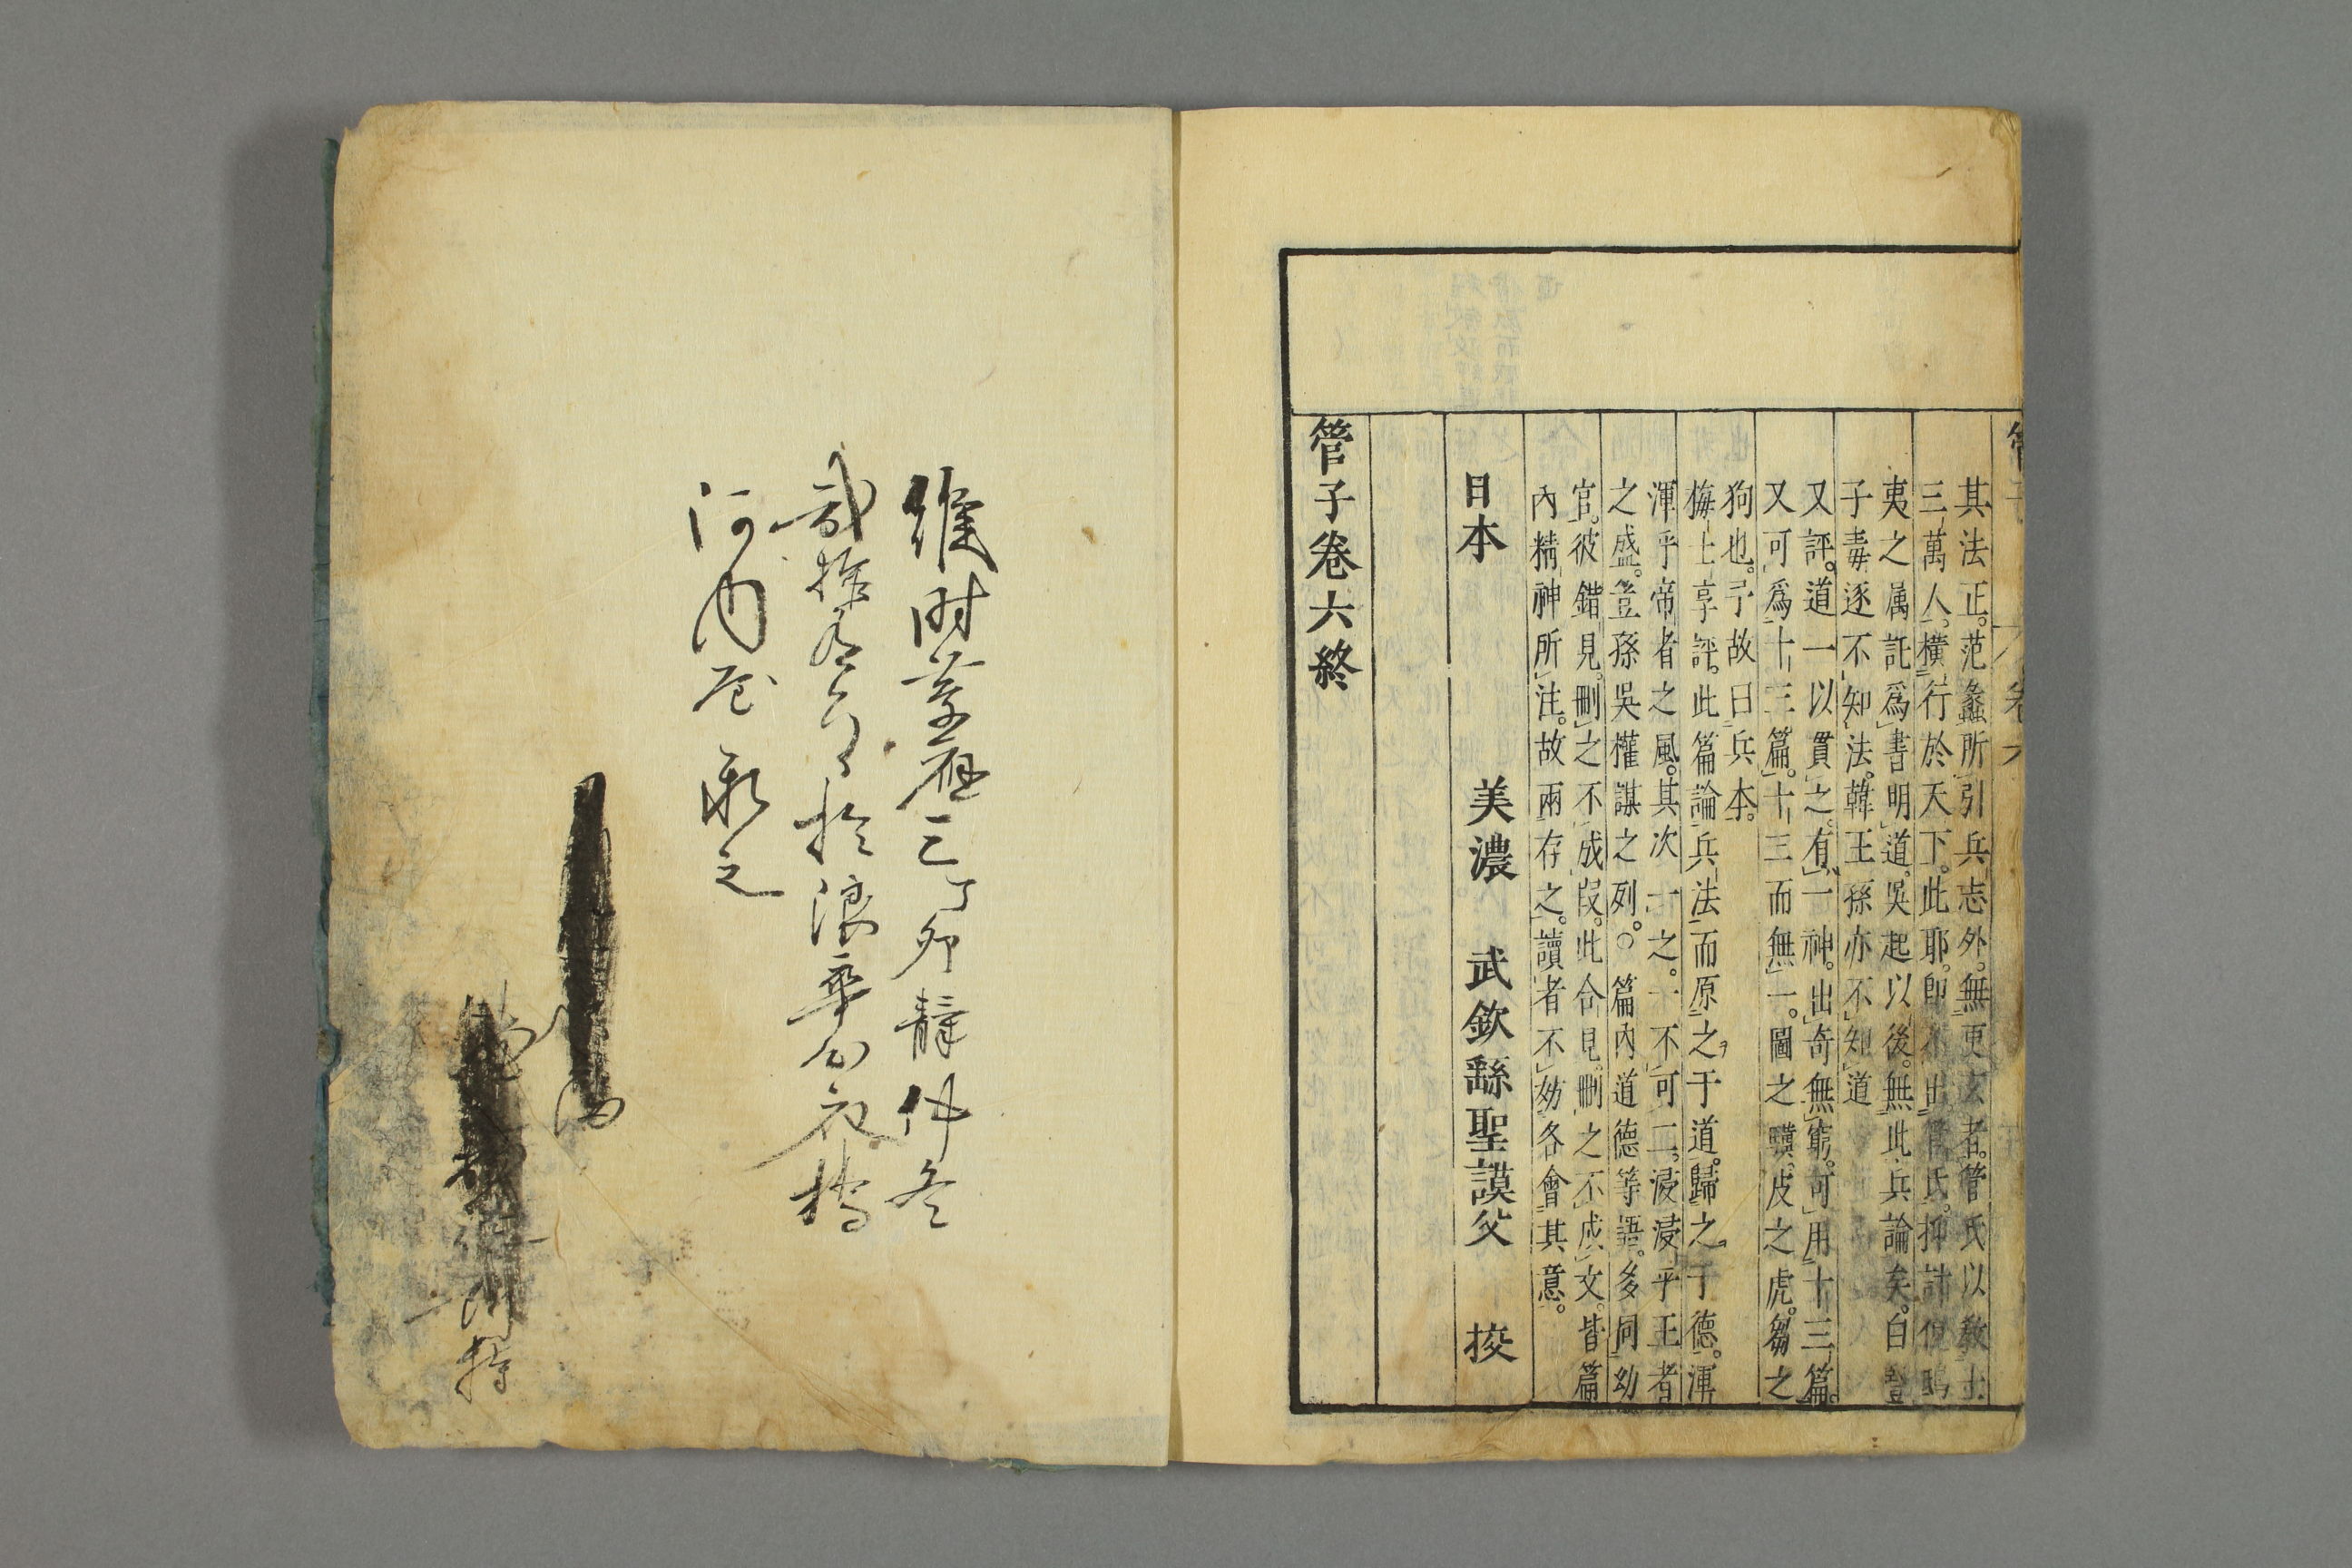 其法正。范蠡所引兵志外。無更玄者。管氏以敎士
三萬人。橫行於天下。此耶。卽不出管氏。抑計倪鴟
夷之属託爲書明道。吳起以後。無此兵論矣。白登
子毒逐不知法。韓王孫亦不知道
又評。道一以貫之。有一神。出奇無窮。可用十三篇。
又可爲十三篇。十三而無一。圖之驥。皮之虎。芻之
狗也。予故曰兵本。
梅士享評。此篇論兵法而原之于道。歸之于德。渾
渾乎帝者之風。其次一之。一不可二。浸浸乎王者
之盛。豈孫吳權謀之列。○篇內道德等語。多同幼
官。彼錯見。刪之不成段。此合見。刪之不成文。皆篇
內精神所注。故兩存之。讀者不妨各會其意。
日本 美濃 武欽繇聖謨父 挍
管子卷六終
維時慶應三丁卯 仲冬
於浪華
河内屋 之